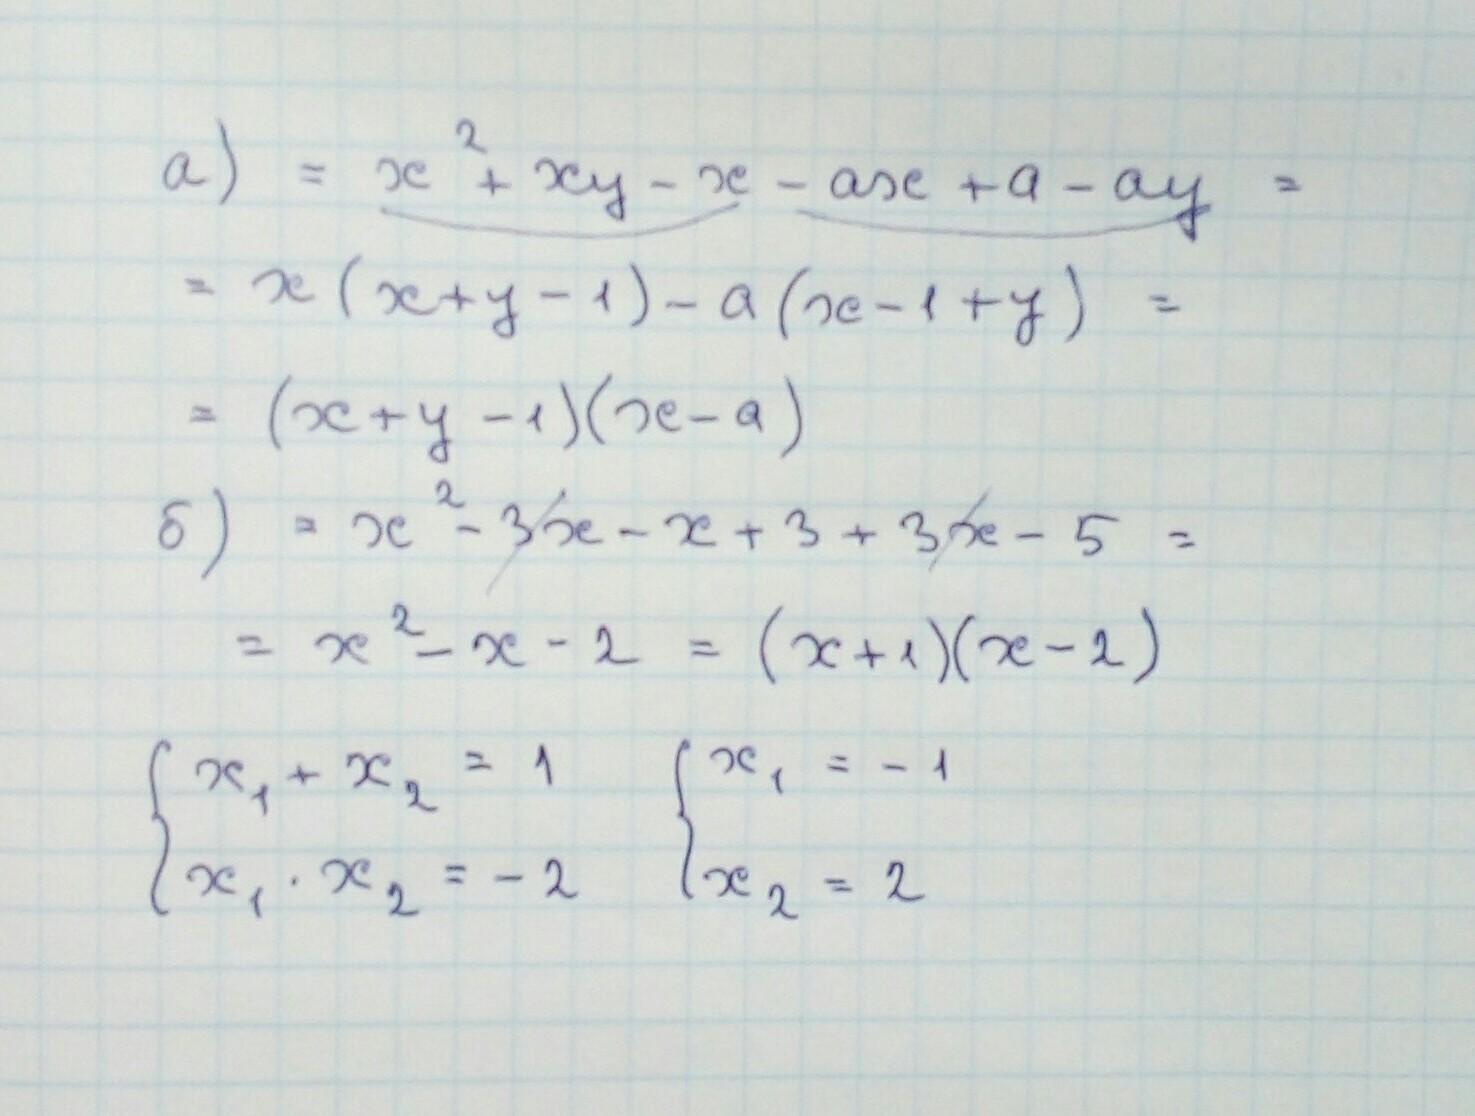 а) = x² + xy - x - ax + a - ay =
= x (x + y - 1) - a (x - 1 + y) =
= (x + y - 1)(x - a)
б) = x² - 3x - x + 3 + 3x - 5 =
= x² - x - 2 = (x + 1)(x - 2)
{ x₁ + x₂ = 1 { x₁ = - 1
x₁ · x₂ = - 2 x₂ = 2